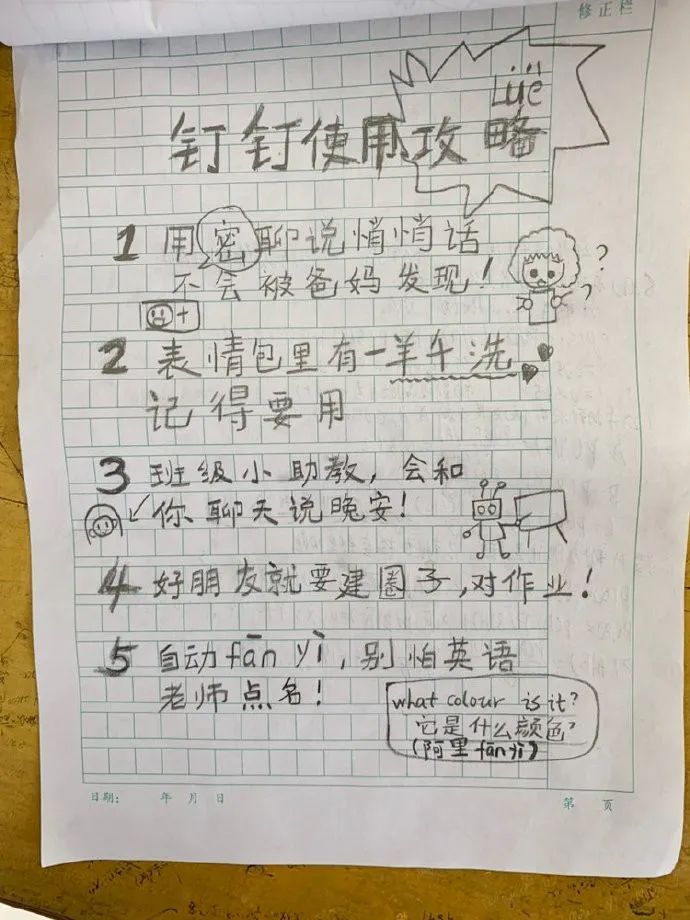 修正栏
Lüē
钉钉使用攻略
1 用密聊说悄悄话
不会被爸妈发现！
?
?
+
2 表情包里有一羊午洗
记得要用
3 班级小助教，会和
你聊天说晚安！
4 好朋友就要建圈子，对作业！
5 自动fān yì，别怕英语
老师点名！
what colour is it?
它是什么颜色？
(阿里fānyì)
日期： 年 月 日
第 页